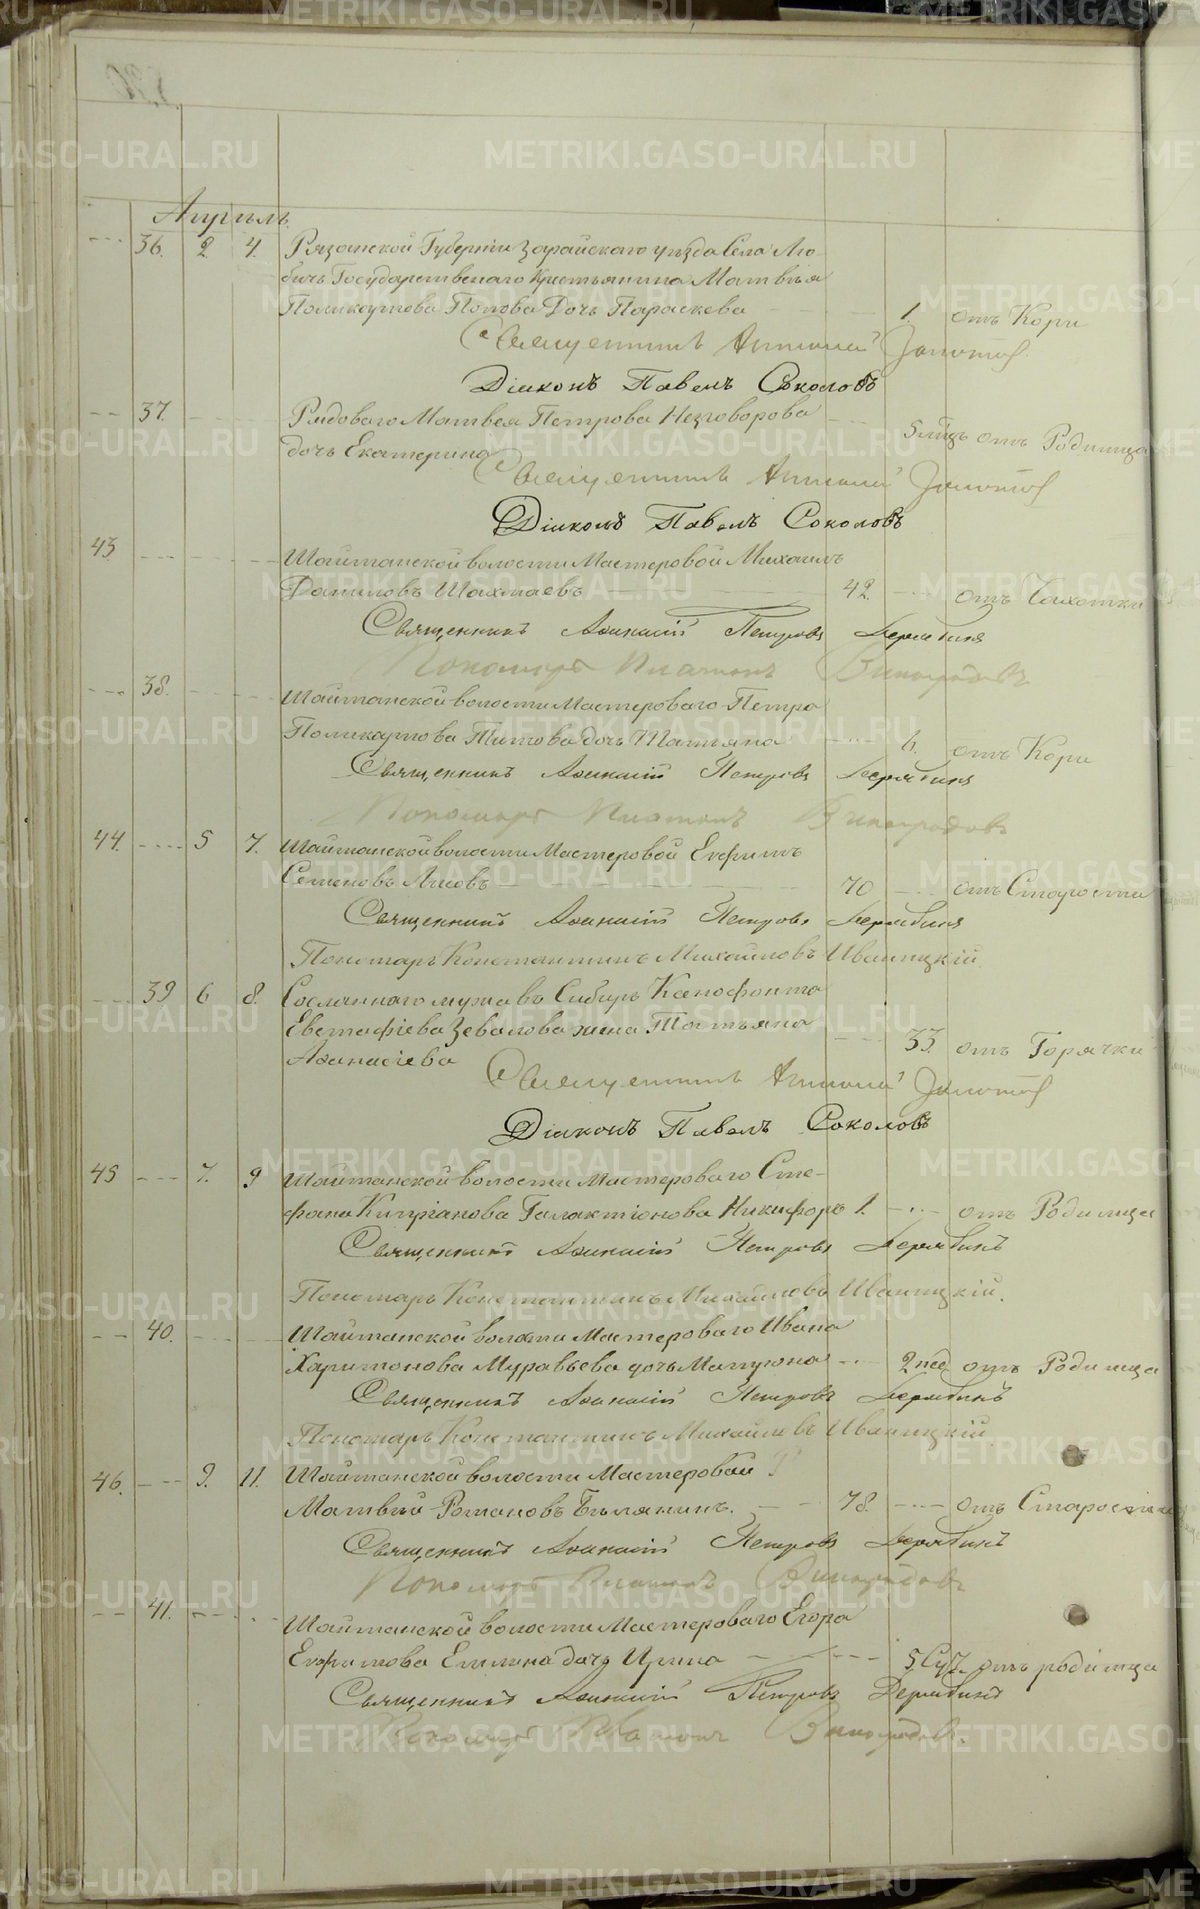 Апрѣль.
36. 2. 4. Рязанской Губерніи Зарайскаго уѣзда Села Лю-
бичь Государственнаго Крестьянина Матвѣя
Поликарпова Попова Дочь Параскева 1. отъ Кори
Священникъ Антоній Золотов
Діаконъ Павелъ Соколовъ
37. Рядоваго Матвея Петрова Незговорова
дочь Екатерина 5 мѣц. отъ Родимца
Священникъ Антоній Золотов
Діаконъ Павелъ Соколовъ
43. Шайтанской волости Мастеровой Михаилъ
Даниловъ Шахмаевъ 42. отъ Чахотки
Священникъ Аѳанасій Петровъ Дерябинъ
Пономарь Платонъ Виноградовъ
38. Шайтанской волости Мастероваго Петра
Поликарпова Титова дочь Татьяна 6. отъ Кори
Священникъ Аѳанасій Петровъ Дерябинъ
Пономарь Платонъ Виноградовъ
44. 5 7. Шайтанской волости Мастеровой Евфимъ
Семеновъ 70 отъ Старости
Священникъ Аѳанасій Петровъ Дерябинъ
Пономарь Константинъ Михайловъ Иваницкій
39 6 8. Сосланнаго мужа въ Сибирь Ксенофонта
Евстафіева Зевалова жена Татьяна
Аѳанасіева 33. отъ Горячки
Священникъ Антоній Золотов
Діаконъ Павелъ Соколовъ
45 7. 9 Шайтанской волости Мастероваго Сте-
фана Кипріанова Галактіонова Никифоръ 1. отъ Родимца
Священникъ Аѳанасій Петровъ Дерябинъ
Пономарь Константинъ Михайловъ Иваницкій.
40. Шайтанской волости Мастероваго Ивана
Харитонова Муравьева дочь Матрона 2 нед. отъ Родимца
Священникъ Аѳанасій Петровъ Дерябинъ
Пономарь Константинъ Михайловъ Иваницкій
46. 9. 11. Шайтанской волости Мастеровой
Матвѣй Романовъ Бѣлянинъ. 78. отъ Старости
Священникъ Аѳанасій Петровъ Дерябинъ
Пономарь Платонъ Виноградовъ
41. Шайтанской волости Мастероваго Егора
Евфимова Емлина дочь Ирина 5 Сут. отъ родимца
Священникъ Аѳанасій Петровъ Дерябинъ
Пономарь Платонъ Виноградовъ.
METRIKI.GASO-URAL.RU